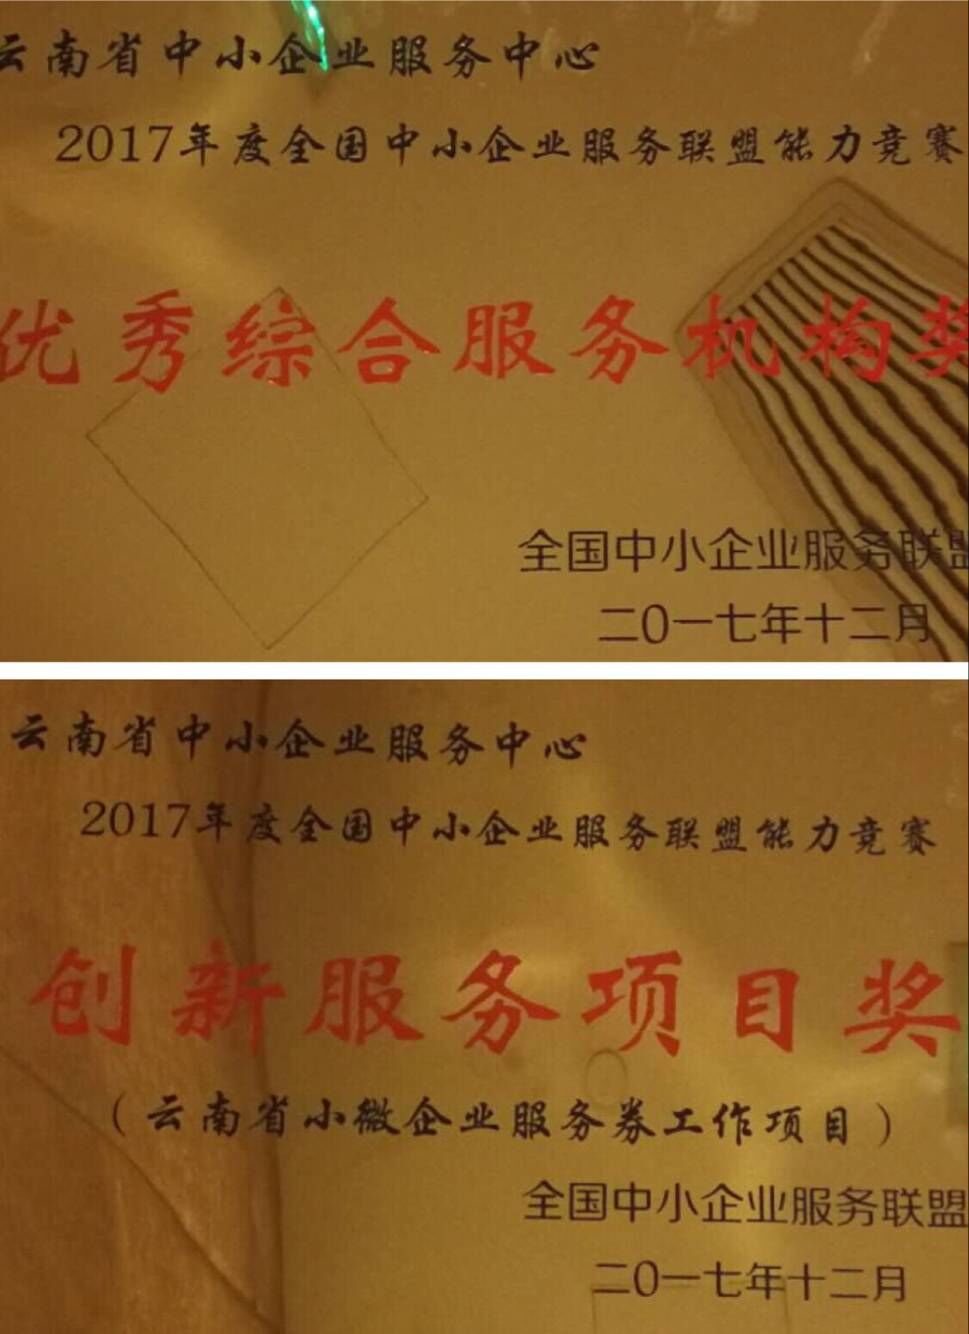 云南省中小企业服务中心
2017年度全国中小企业服务联盟能力竞赛
优秀综合服务机构奖
全国中小企业服务联盟
二〇一七年十二月
云南省中小企业服务中心
2017年度全国中小企业服务联盟能力竞赛
创新服务项目奖
（云南省小微企业服务券工作项目）
全国中小企业服务联盟
二〇一七年十二月